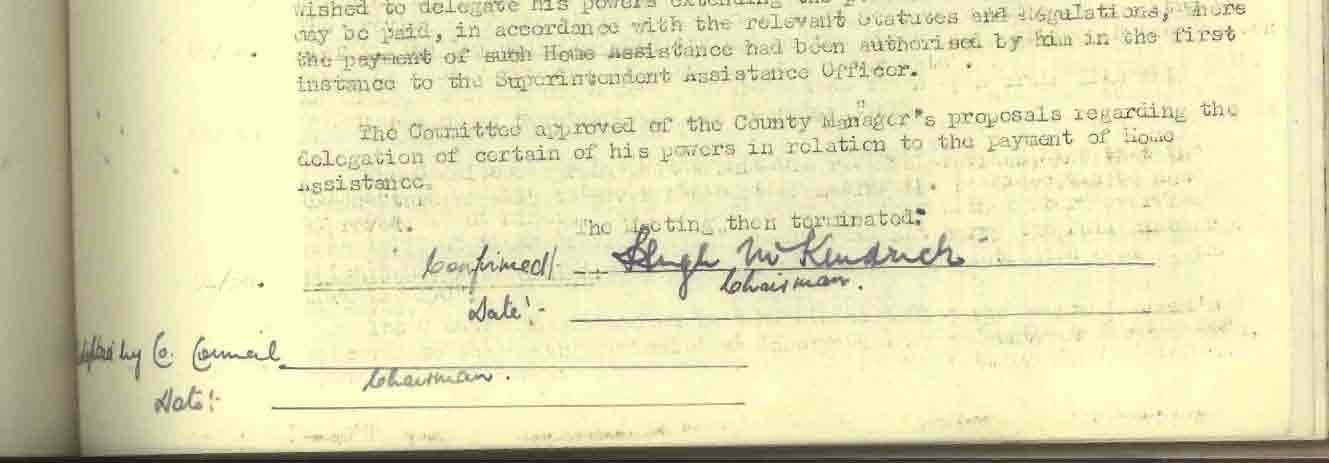 wished to delegate his powers extending the
may be paid, in accordance with the relevant Statutes and Regulations, where
the payment of such Home Assistance had been authorised by him in the first
instance to the Superintendent Assistance Officer.
The Committee approved of the County Manager's proposals regarding the
delegation of certain of his powers in relation to the payment of Home
Assistance.
The Meeting then terminated.
Confirmed/- Hugh McKendrick
Chairman.
Date:-
by Co. Council
Chairman.
Date:-